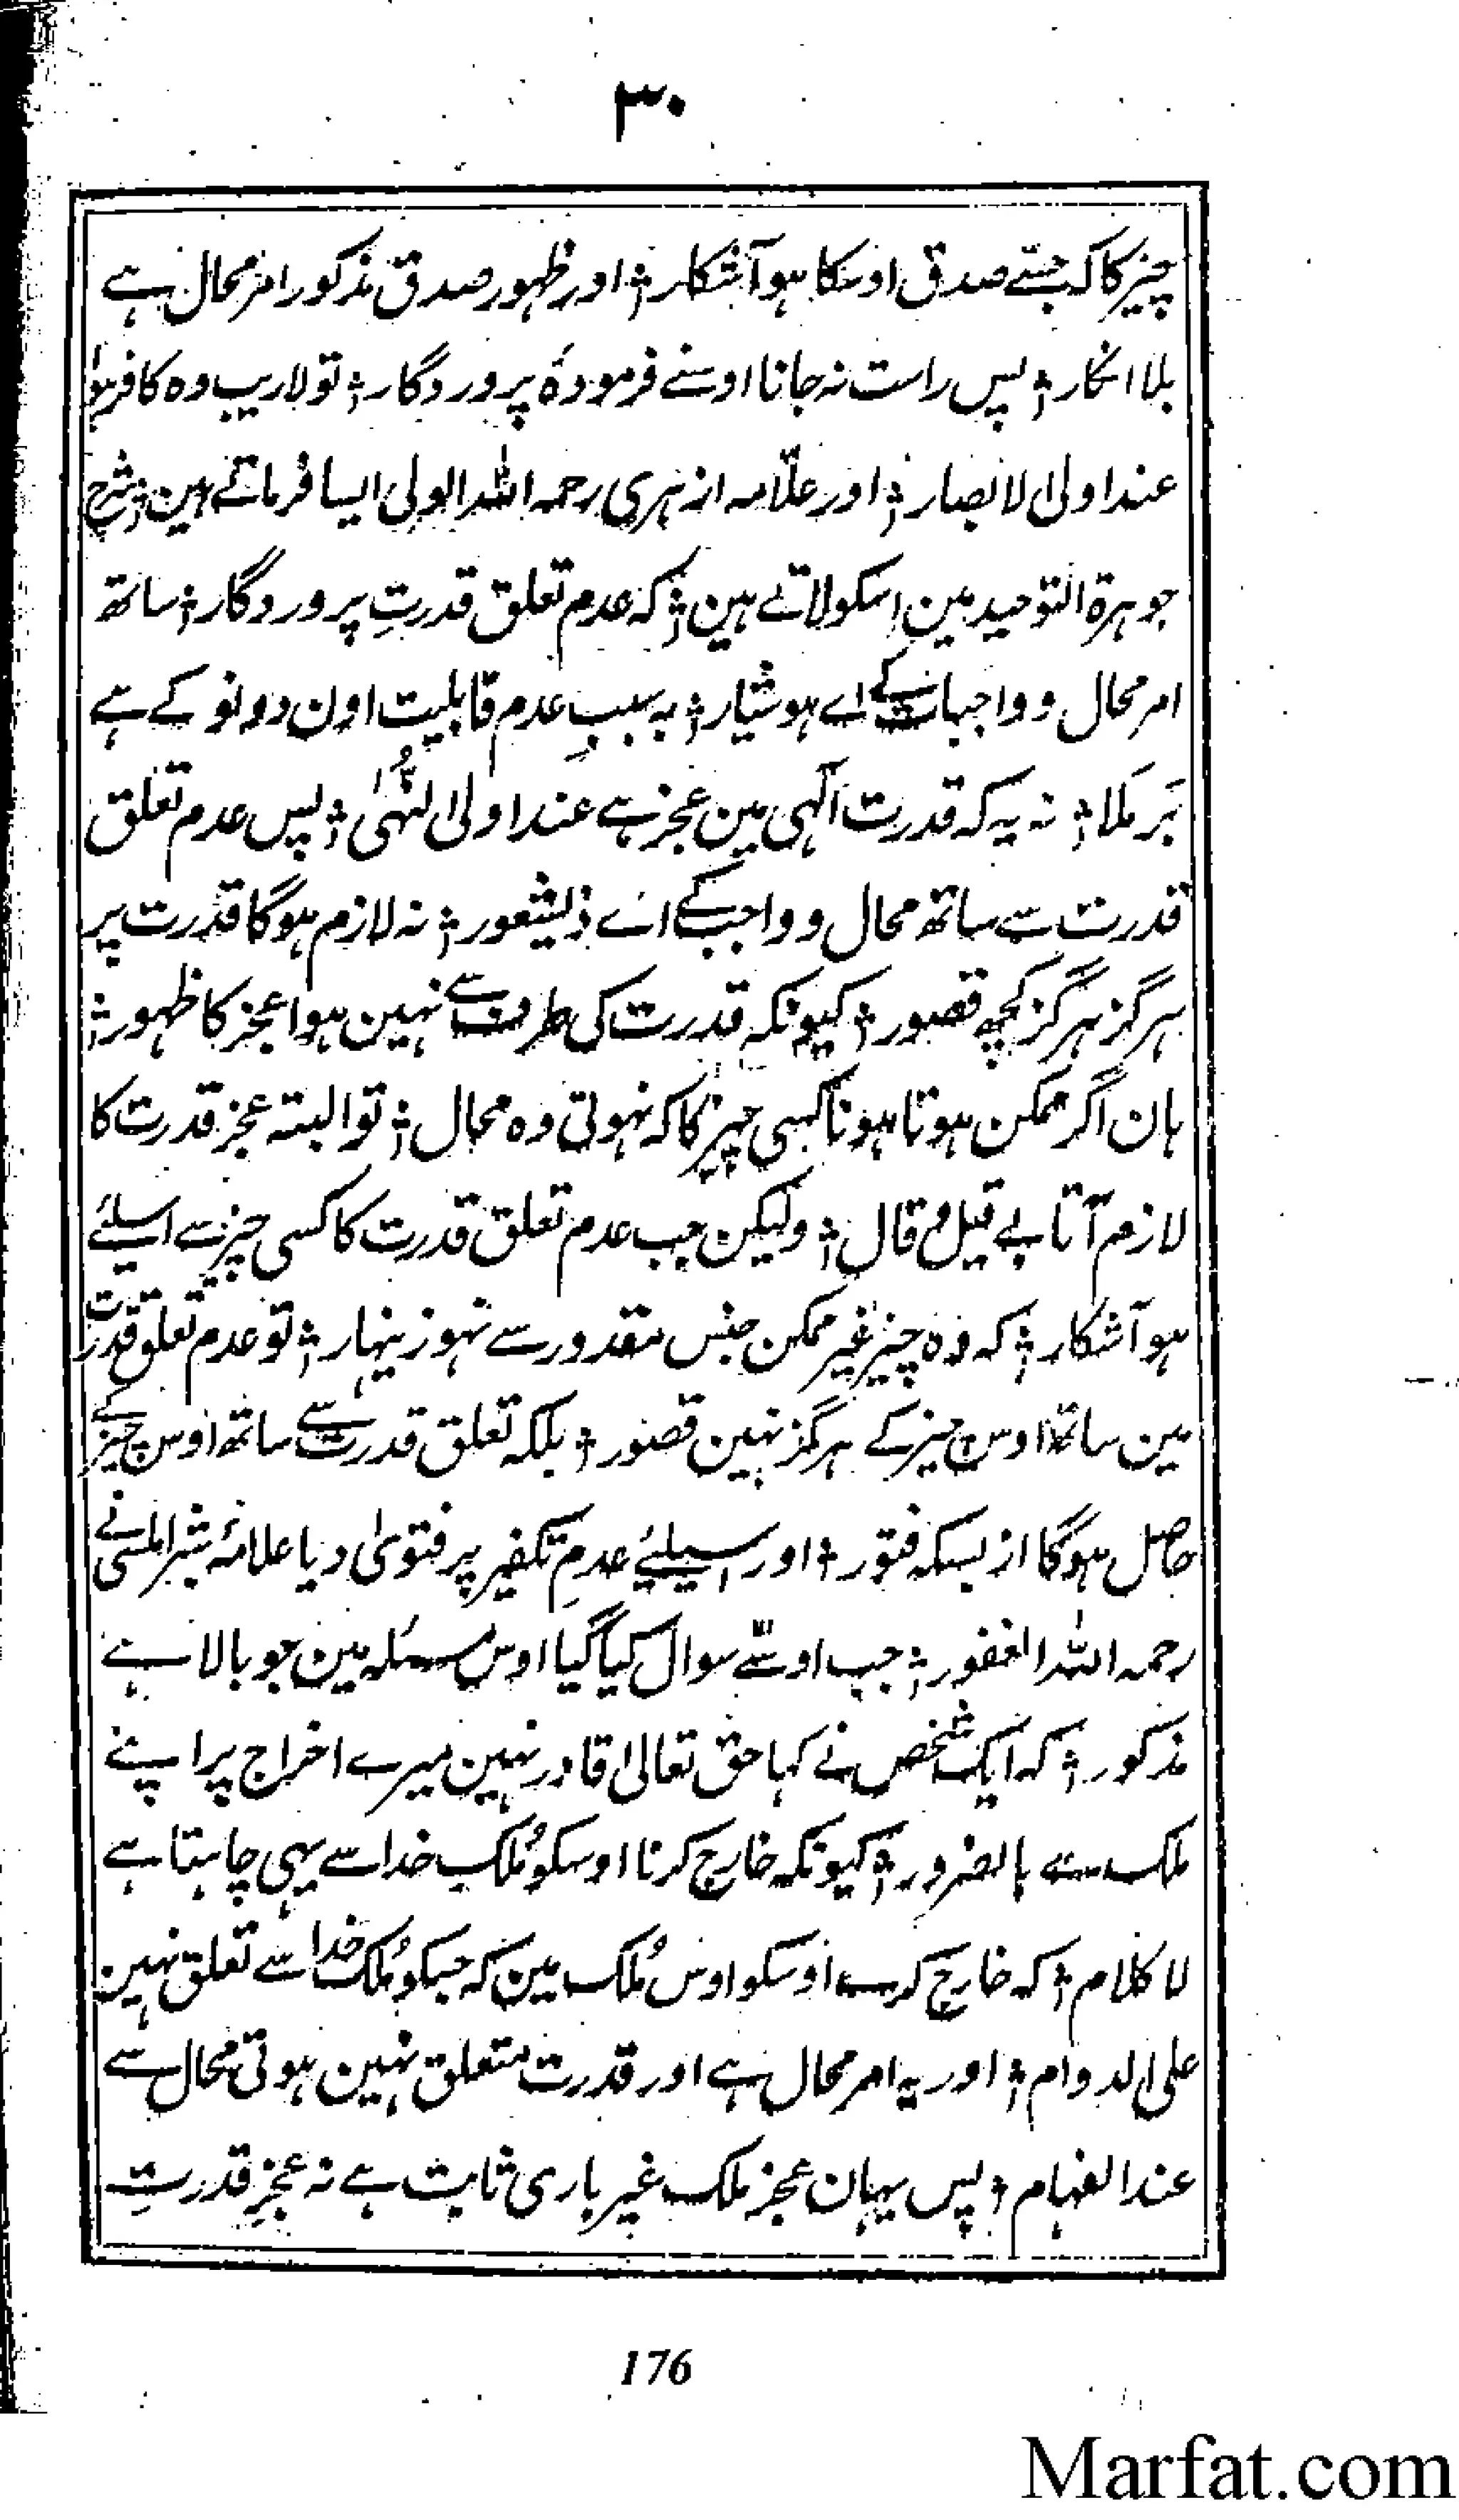 ۳۰
چیز کا کہ جستے صدق اوسکا ہو آشکار ؛ اور ظہور صدق مذکور امر محال ہے
بلا انکار ؛ پس راست نہ جانا اوسنے فرمودۂ پروردگار ؛ تو لاریب وہ کافر ہوا
عند اولی الابصار ؛ اور علّامہ ازہری رحمہ اللہ الولی ایسا فرماتے ہین ؛ شرح
جوہرۃ التوحید مین اسکو لاتے ہین ؛ کہ عدم تعلق قدرتِ پروردگار ؛ ساتھ
امر محال و واجبات کے اے ہوشیار ؛ بہ سببِ عدم قابلیت اون دونو کے ہے
بَرمَلا ؛ نہ یہ کہ قدرت الٰہی مین عجز ہے عند اولی النُہٰی ؛ پس عدم تعلق
قدرت سے ساتھ محال و واجب کے اے ذیشعور ؛ نہ لازم ہوگا قدرت پر
ہرگز ہرگز کچھ قصور ؛ کیونکہ قدرت کی طرف سے نہین ہوا عجز کا ظہور ؛
ہان اگر ممکن ہوتا ہونا کسی چیز کا کہ نہوتی وہ محال ؛ تو البتہ عجز قدرت کا
لازم آتا بے قیل و قال ؛ ولیکن جب عدم تعلق قدرت کا کسی چیز سے اسلئے
ہو آشکار ؛ کہ وہ چیز غیر ممکن جنس مقدور سے نہو زینہار ؛ تو عدم تعلق قدرت
مین ساتھ اوس چیز کے ہرگز نہین قصور ؛ بلکہ تعلق قدرت سے ساتھ اوس چیز کے
حاصل ہوگا ازبسکہ فتور ؛ اور اسیلیے عدمِ تکفیر پر فتویٰ دیا علامۂ شبراملسی نے
رحمہ اللہ الغفور ؛ جب اوسّے سوال کیا گیا اوس مسئلہ مین جو بالا ہے
مذکور ؛ کہ ایک شخص نے کہا حق تعالیٰ قادر نہین میرے اخراج پر اپنے
ملک سے بالضرور ؛ کیونکہ خارج کرنا اوسکو مُلکِ خدا سے یہی چاہتا ہے
لا کلام ؛ کہ خارج کرے اوسکو اوس مُلک مین کہ جسکو مُلک خدا سے تعلق نہین
علی الدوام ؛ اور یہ امر محال ہے اور قدرت متعلق نہین ہوتی محال سے
عند الفہام ؛ پس یہان عجز ملک غیر باری ثابت ہے نہ عجزِ قدرتِ
176
Marfat.com